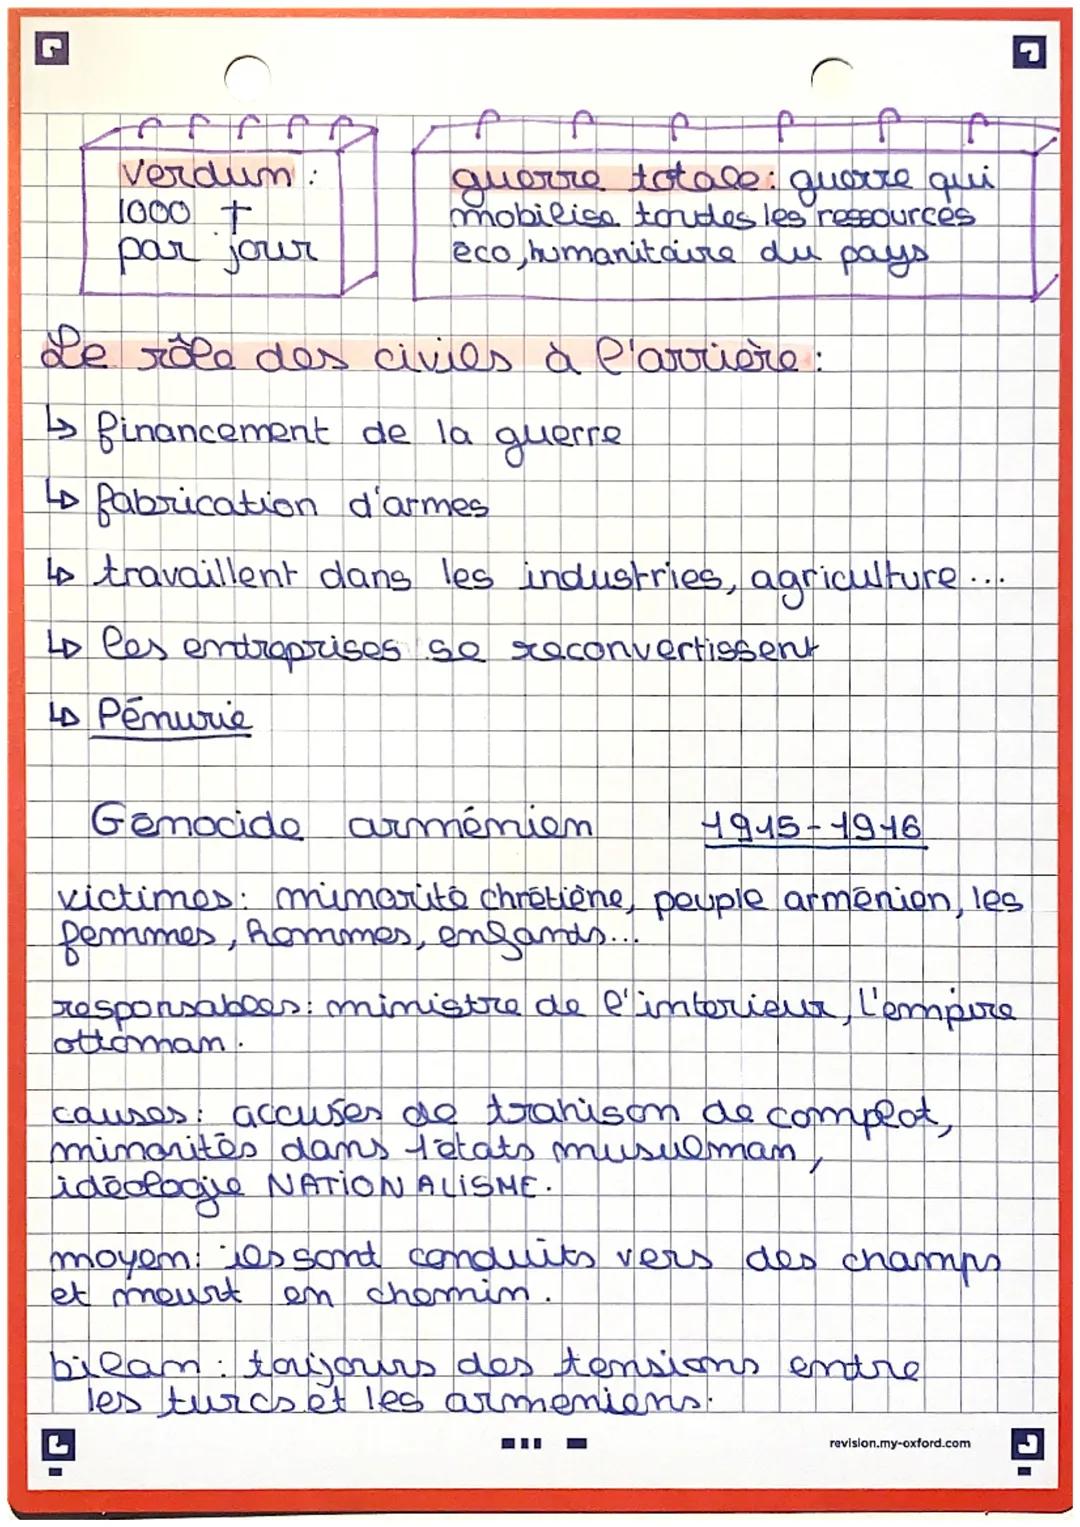 verdun :
1000 †
par jour
guerre totale: guerre qui
mobilise toutes les ressources
eco, humanitaire du pays
Le rôle des civils à l'arrière :
↳ financement de la guerre
↳ fabrication d'armes
↳ travaillent dans les industries, agriculture...
↳ les entreprises se reconvertissent
↳ Pénurie
Génocide arménien 1915-1916
victimes: minorité chrétiène, peuple arménien, les
femmes, hommes, enfants...
responsables: ministre de l'interieur, l'empire
ottoman.
causes: accuses de trahison de complot,
minorités dans l'états musulman,
idéologie NATIONALISME.
moyen: ils sont conduits vers des champs
et meurt en chemin.
bilan : toujours des tensions entre
les turcs et les armeniens.
revision.my-oxford.com